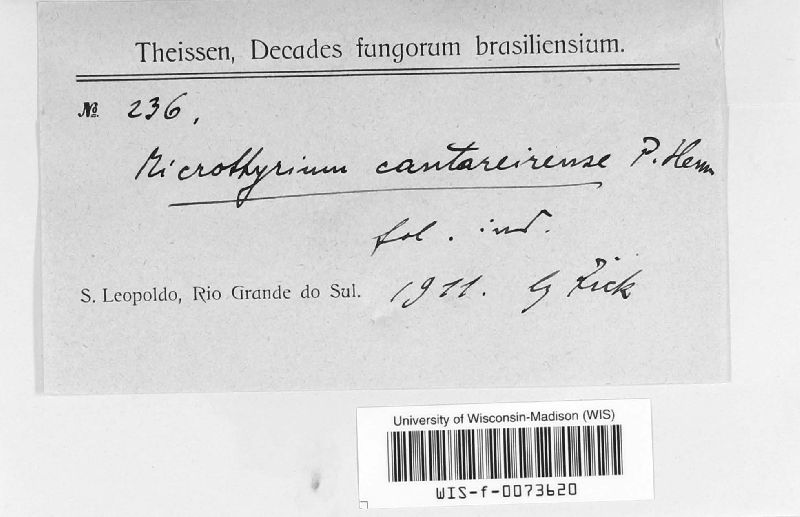 Theissen, Decades fungorum brasiliensium.
No. 236.
Microthyrium cantareirense P. Henn
fol. ind.
S. Leopoldo, Rio Grande do Sul. 1911. lg Rick
University of Wisconsin-Madison (WIS)
WIS-f-0073620